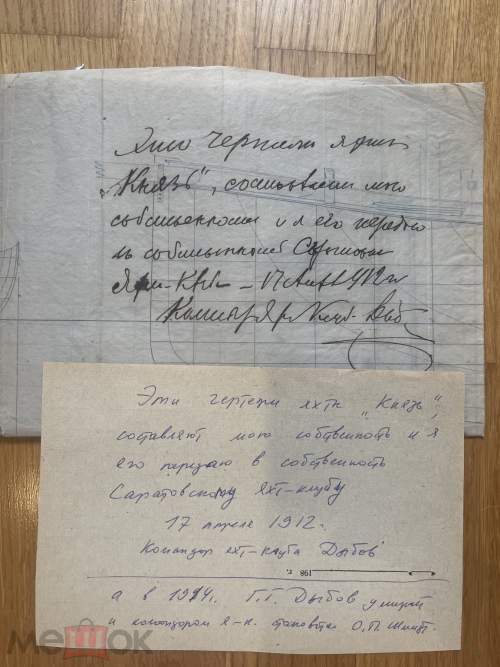 Эти чертежи яхты
„Князь", составляют мою
собственность и я его передаю
в собственность
17 1912 г.
Командор
Эти чертежи яхты „Князь",
составляют мою собственность и я
его передаю в собственность
Саратовскому яхт-клубу
17 апреля 1912г.
Командор яхт-клуба Дыбов
198 г.
а в 1914. Г.Г. Дыбов умирает
и командором я-к. становится О.П. Шмидт.
мешок